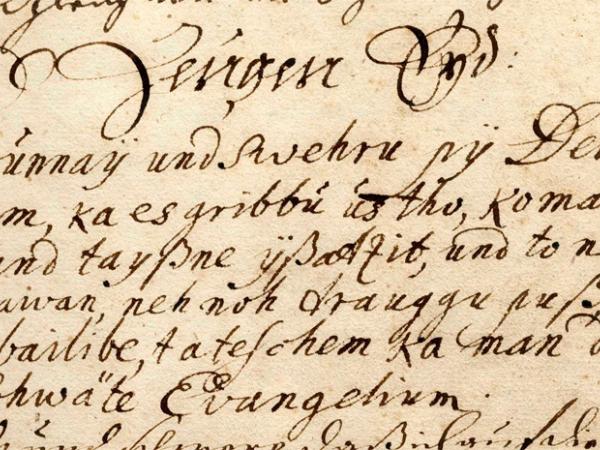 Zeügen Eyd:
ünnaÿ und swehru pÿ De
m, ka es gribbü üs tho, koma
und tayßne ÿßatzit, und to n
aiwan, neh noh drauggu puß
bailibe, tateschem ka man d
chwäte Evangelium.